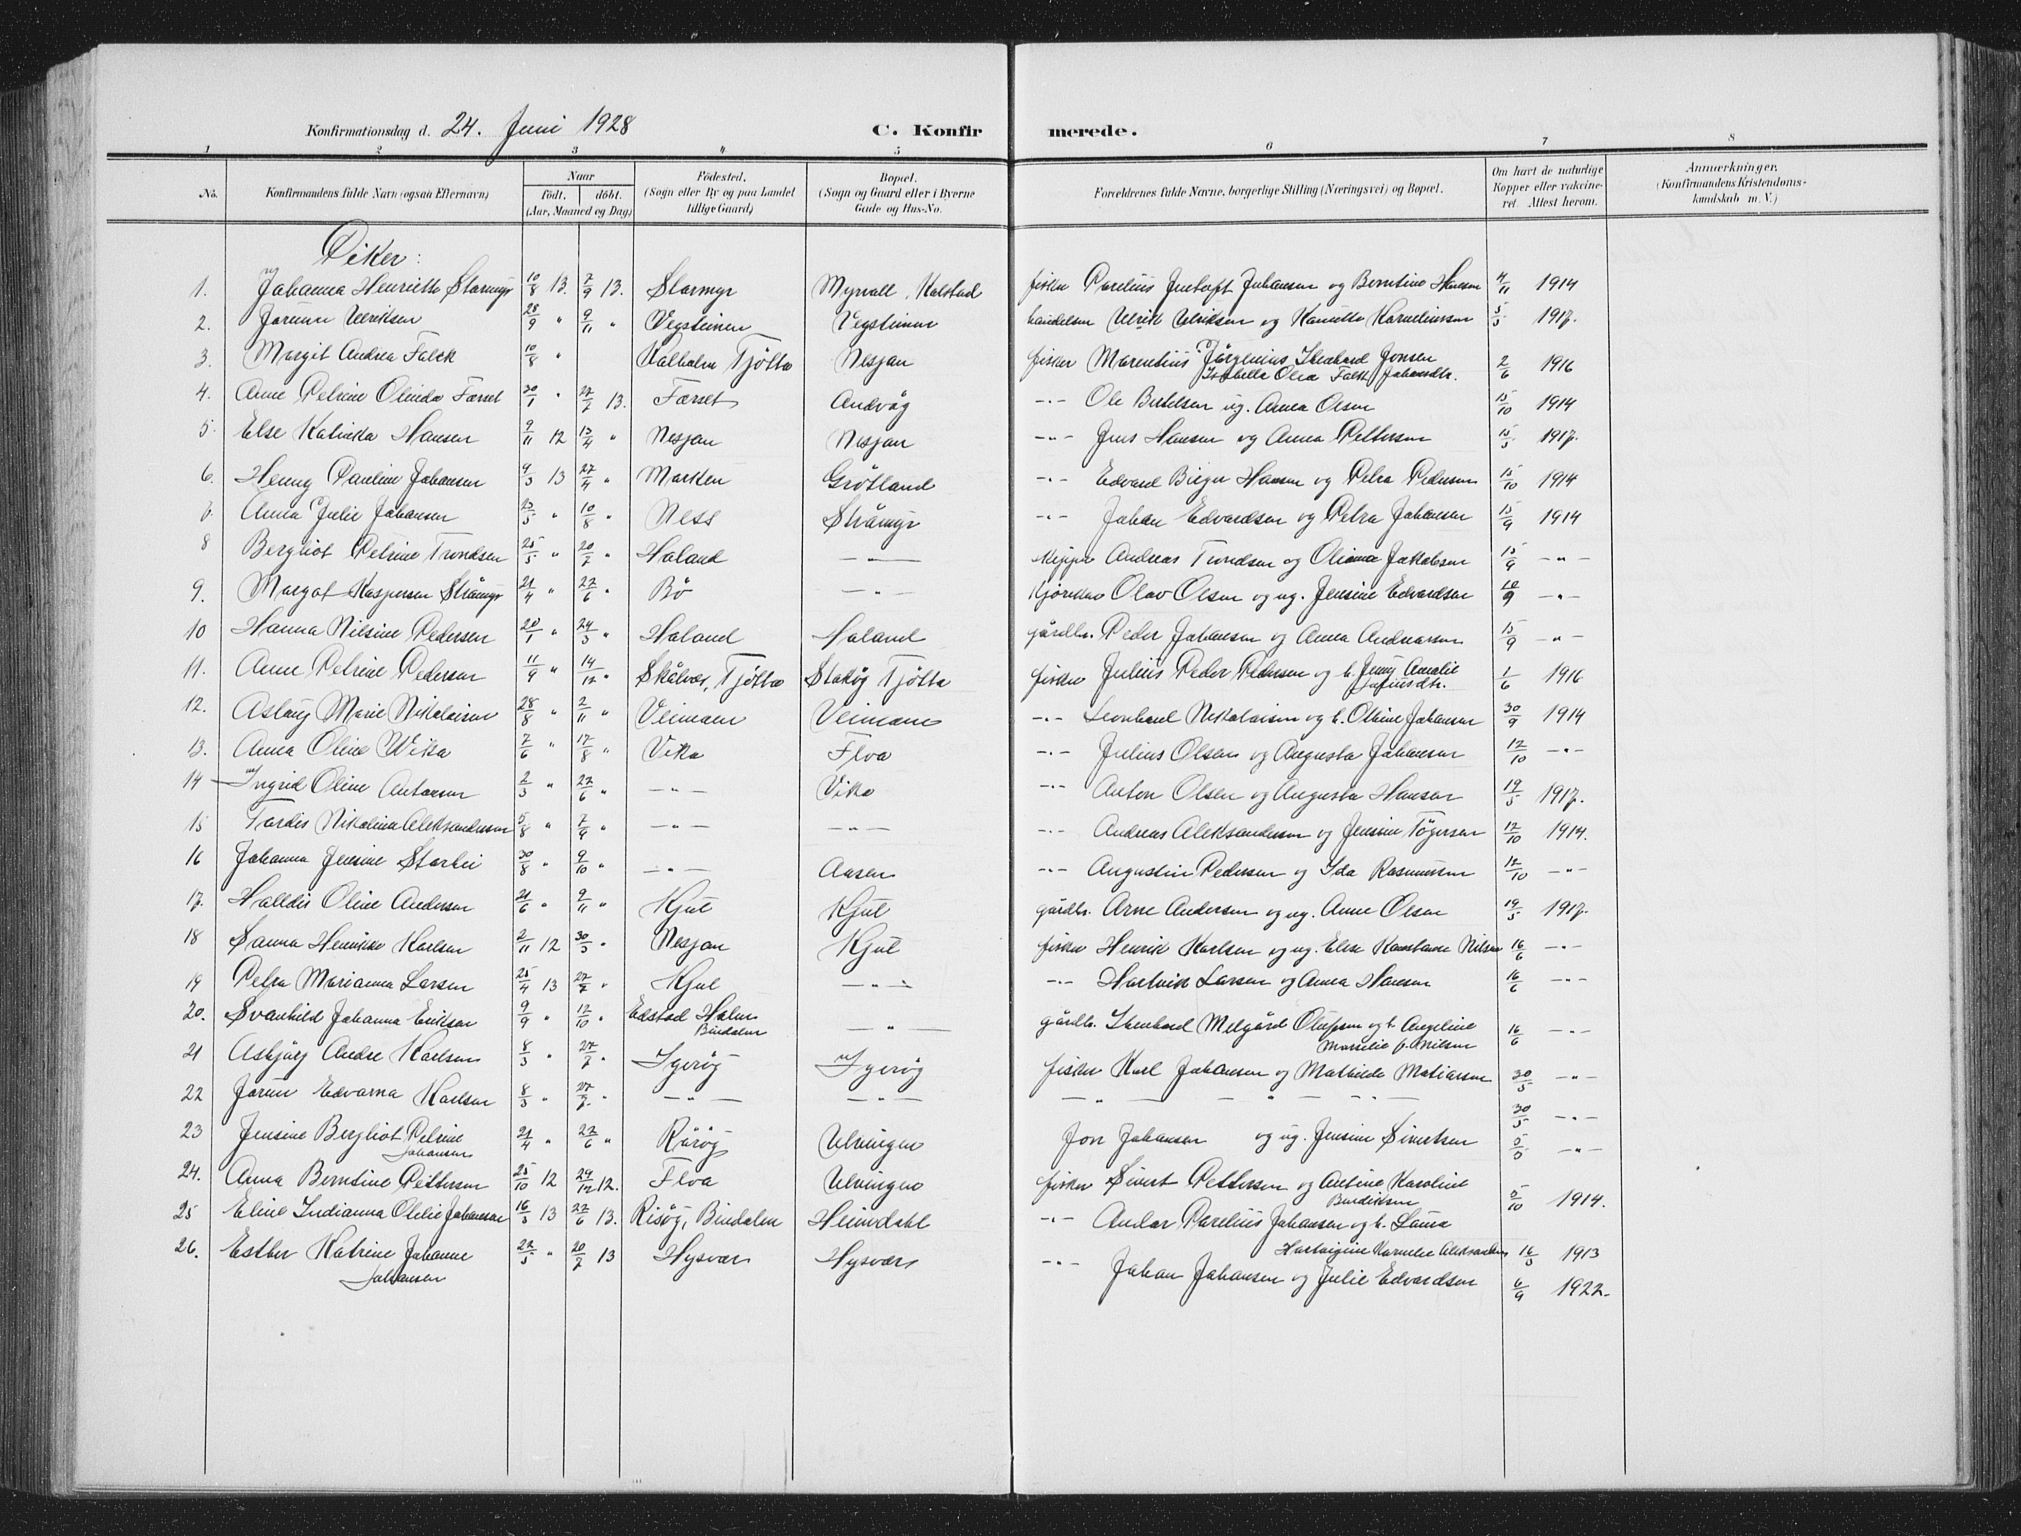 Konfirmationsdag d. 24. Juni 1928 C. Konfirmerede.
1 2 3 4 5 6 7 8
No. Konfirmandens fulde Navn (ogsaa Efternavn) Naar født. døbt. (Aar, Maaned og Dag) Fødested. (Sogn eller By og paa Landet tillige Gaard) Bopæl. (Sogn og Gaard eller i Byerne Gade og Hus-No. Forældrenes fulde Navne, borgerlige Stilling (Næringsvei) og Bopæl. Om havt de naturlige Kopper eller vakcineret. Attest herom. Anmærkninger. (Konfirmandens Kristendomskundskab m. V.)
Piker:
1. Johanna Henriette Stormyr 10/8 13. 7/9 13. Stormyr Myrvall, Kalstad fisker Parelius Jentoft Johansen og Berntine Hansen 4/11 1914
2. Jorunn Ulriksen 28/9 " 9/11 " Vegsteinen Vegsteinen handelsm Ulrik Ulriksen og Kanutte Korneliussen 5/5 1917.
3. Margit Andrea Falck 10/8 " Kalholm Tjøtta Nesjan fisker Marentius Jørginius Ikenhard Jonsen Isabella Olea Falk Johansdtr. 2/6 1916
4. Anne Petrine Olinda Færset 30/1 " 27/7 13. Færset Andvåg -"- Ole Bertelsen ug. Anna Olsen 15/10 1914
5. Else Katinka Hansen 9/11 12 13/4 " Nesjan Nesjan -"- Jens Hansen og Anna Pettersen 15/5 1917.
6. Henny Pauline Johansen 9/3 13 27/4 " Marken Grøtland -"- Edvard Birger Hansen og Petra Pedersen 15/10 1914
7. Anna Julie Johansen 23/5 " 10/8 " Ness Stråmyr -"- Johan Edvardsen og Petra Johansen 15/9 1914
8 Bergliot Petrine Trondsen 25/5 " 20/7 " Haland -"- skipper Andreas Trondsen og Oliana Jakobsen 15/9 -"-
9. Margot Kaspersen Stråmyr 21/4 " 22/6 " Bø -"- Olav Olsen og ug. Jensine Edvardsen 10/9 -"-
10 Hanna Nilsine Pedersen 20/1 " 24/3 " Haland Haland gårdbr. Peder Johansen og Anna Andreassen 15/9 -"-
11. Anne Petrine Pedersen 11/9 " 14/12 " Skålvær, Tjøtta Stokøy Tjøtta fisker Julius Peder Pedersen og h. Jenny Amalie Juliusdtr. 1/6 1916
12. Aslaug Marie Nikolaisen 28/8 " 2/11 " Veimoen Veimoen -"- Leonhard Nikolaisen og h. Othine Johansen 30/9 1914
13. Anna Oline Wika 7/6 " 17/8 " Vika Floa -"- Julius Olsen og Augusta Johansen 12/10 -"-
14 Ingrid Oline Antonsen 2/3 " 22/6 " -"- Vika -"- Anton Olsen og Augusta Hansen 19/5 1917.
15 Tordis Nikoline Aleksandersen 5/8 " 7/9 " -"- -"- -"- Andreas Aleksandersen og Jensine Tøgersen 12/10 1914.
16 Johanna Jensine Storlei 30/8 " 9/10 " -"- Aasen -"- Augustin Pedersen og Ida Rasmussen 12/10 -"-
17. Halldis Oline Andersen 21/6 " 9/11 " Kjul Kjul gårdbr. Arne Andersen og ug. Anne Olsen 19/5 1917.
18 Sanna Henrikke Karlsen 2/11 12 30/3 " Nesjan Kjul fisker Henrik Karlsen og ug. Else Konstanse Nilsen 16/6 -"-
19 Petra Marianna Larsen 25/4 13 27/7 " Kjul -"- -"- Hartvik Larsen og Anna Hansen 16/6 -"-
20. Svanhild Johanna Eriksen 9/9 " 12/10 " Edstad Holm Bindalen -"- gårdbr. Ikenhard Melgård Olufsen og h. Angeline f. Nilsen 16/6 -"-
21 Asbjørg Andre Karlsen 8/3 " 27/7 " Igerøy Igerøy fisker Karl Johansen og Mathilde Matiassen 30/5 -"-
22 Jorun Edvarna Karlsen 8/3 " 27/7. " -"- -"- -"- 30/5 -"-
23 Jensine Bergliot Petrine Johansen 21/4 " 22/6 " Rårøy Ulvingen Jon Johansen og ug. Jensine Sivertsen 5/5 -"-
24. Anna Berntine Pettersen 25/10 12 29/12 12. Floa Ulvingen fisker Sivert Pettersen og Antina Karoline Bendiksen 5/10 1914.
25 Eline Indianna Otelie Johansen 16/3 13 22/6 13. Risøy, Bindalen Heimdahl -"- Andor Parelius Johansen og h. Laura Hartvigine Kornelie Aleksandersen 16/3 1913
26. Esther Katrine Johanne Johansen 22/5 " 20/7 13 Hysvær Hysvær -"- Johan Johansen og Julie Edvardsen 6/9 1922.